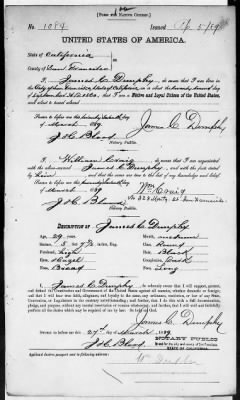 [FORM FOR NATIVE CITIZEN.]
No. 1084 Issued Ap 5/89
UNITED STATES OF AMERICA.
State of California
County of San Francisco
I, James C. Dunphy, do swear that I was born in the
City of San Francisco, State of California, on
that I am a Native and Loyal Citizen of the United States,
and about to travel abroad
Sworn to before me this twenty seventh day
of March 1889
James C. Dunphy
J. H. Blood
Notary Public.
I, William Craig, do swear that I am acquainted
with the above-named James C. Dunphy, and with the facts stated
by him, and that the same are true to the best of my knowledge and belief.
Sworn to before me this twenty seventh day
of March 1889
Wm Craig
San Francisco
J. H. Blood
Notary Public.
DESCRIPTION OF James C. Dunphy
Age: 29 years. Mouth: medium
Stature: 5 ft 7 1/2 inches, Eng. Chin: Round
Forehead: high Hair: Black
Eyes: Hazel Complexion: Dark
Nose: Broad Face: Long
I, James C. Dunphy, do solemnly swear that I will support, protect
and defend the Constitution and Government of the United States against all enemies, whether domestic or foreign;
and that I will bear true faith, allegiance, and loyalty to the same, any ordinance, resolution, or law of any State,
Convention, or Legislature to the contrary notwithstanding; and further, that I do this with a full determination,
pledge, and purpose, without any mental reservation or evasion whatsoever; and further, that I will well and faithfully
perform all the duties which may be required of me by law: So help me God.
James C. Dunphy
Sworn to before me this 27th day of March, 1889.
J. H. Blood,
NOTARY PUBLIC
STATE OF CALIFORNIA
Applicant desires passport to be sent to following address: